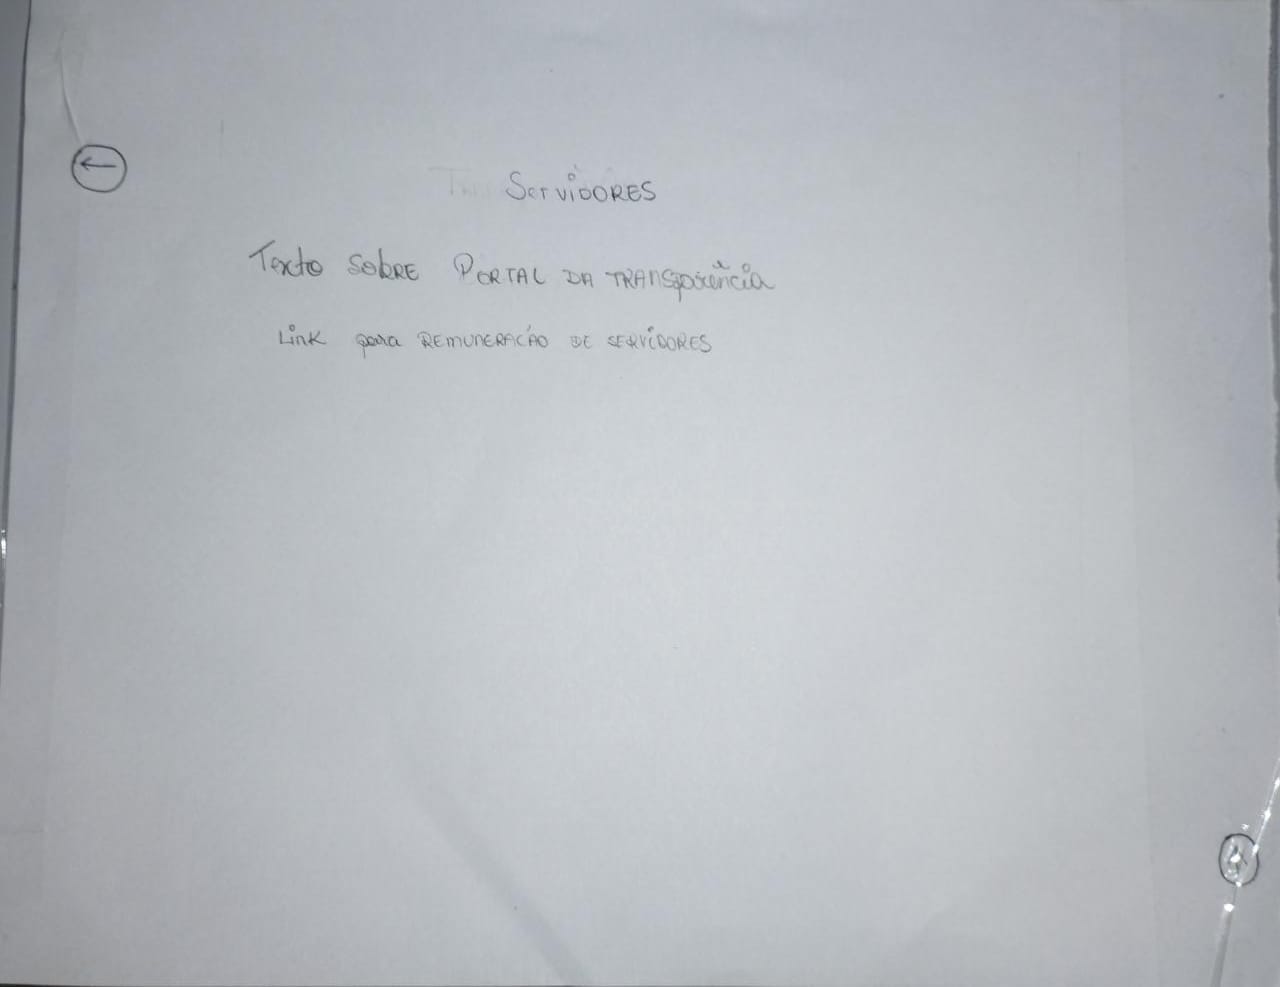 Servidores
Texto sobre Portal da transparência
Link para REMUNERAÇÃO DE SERVIDORES